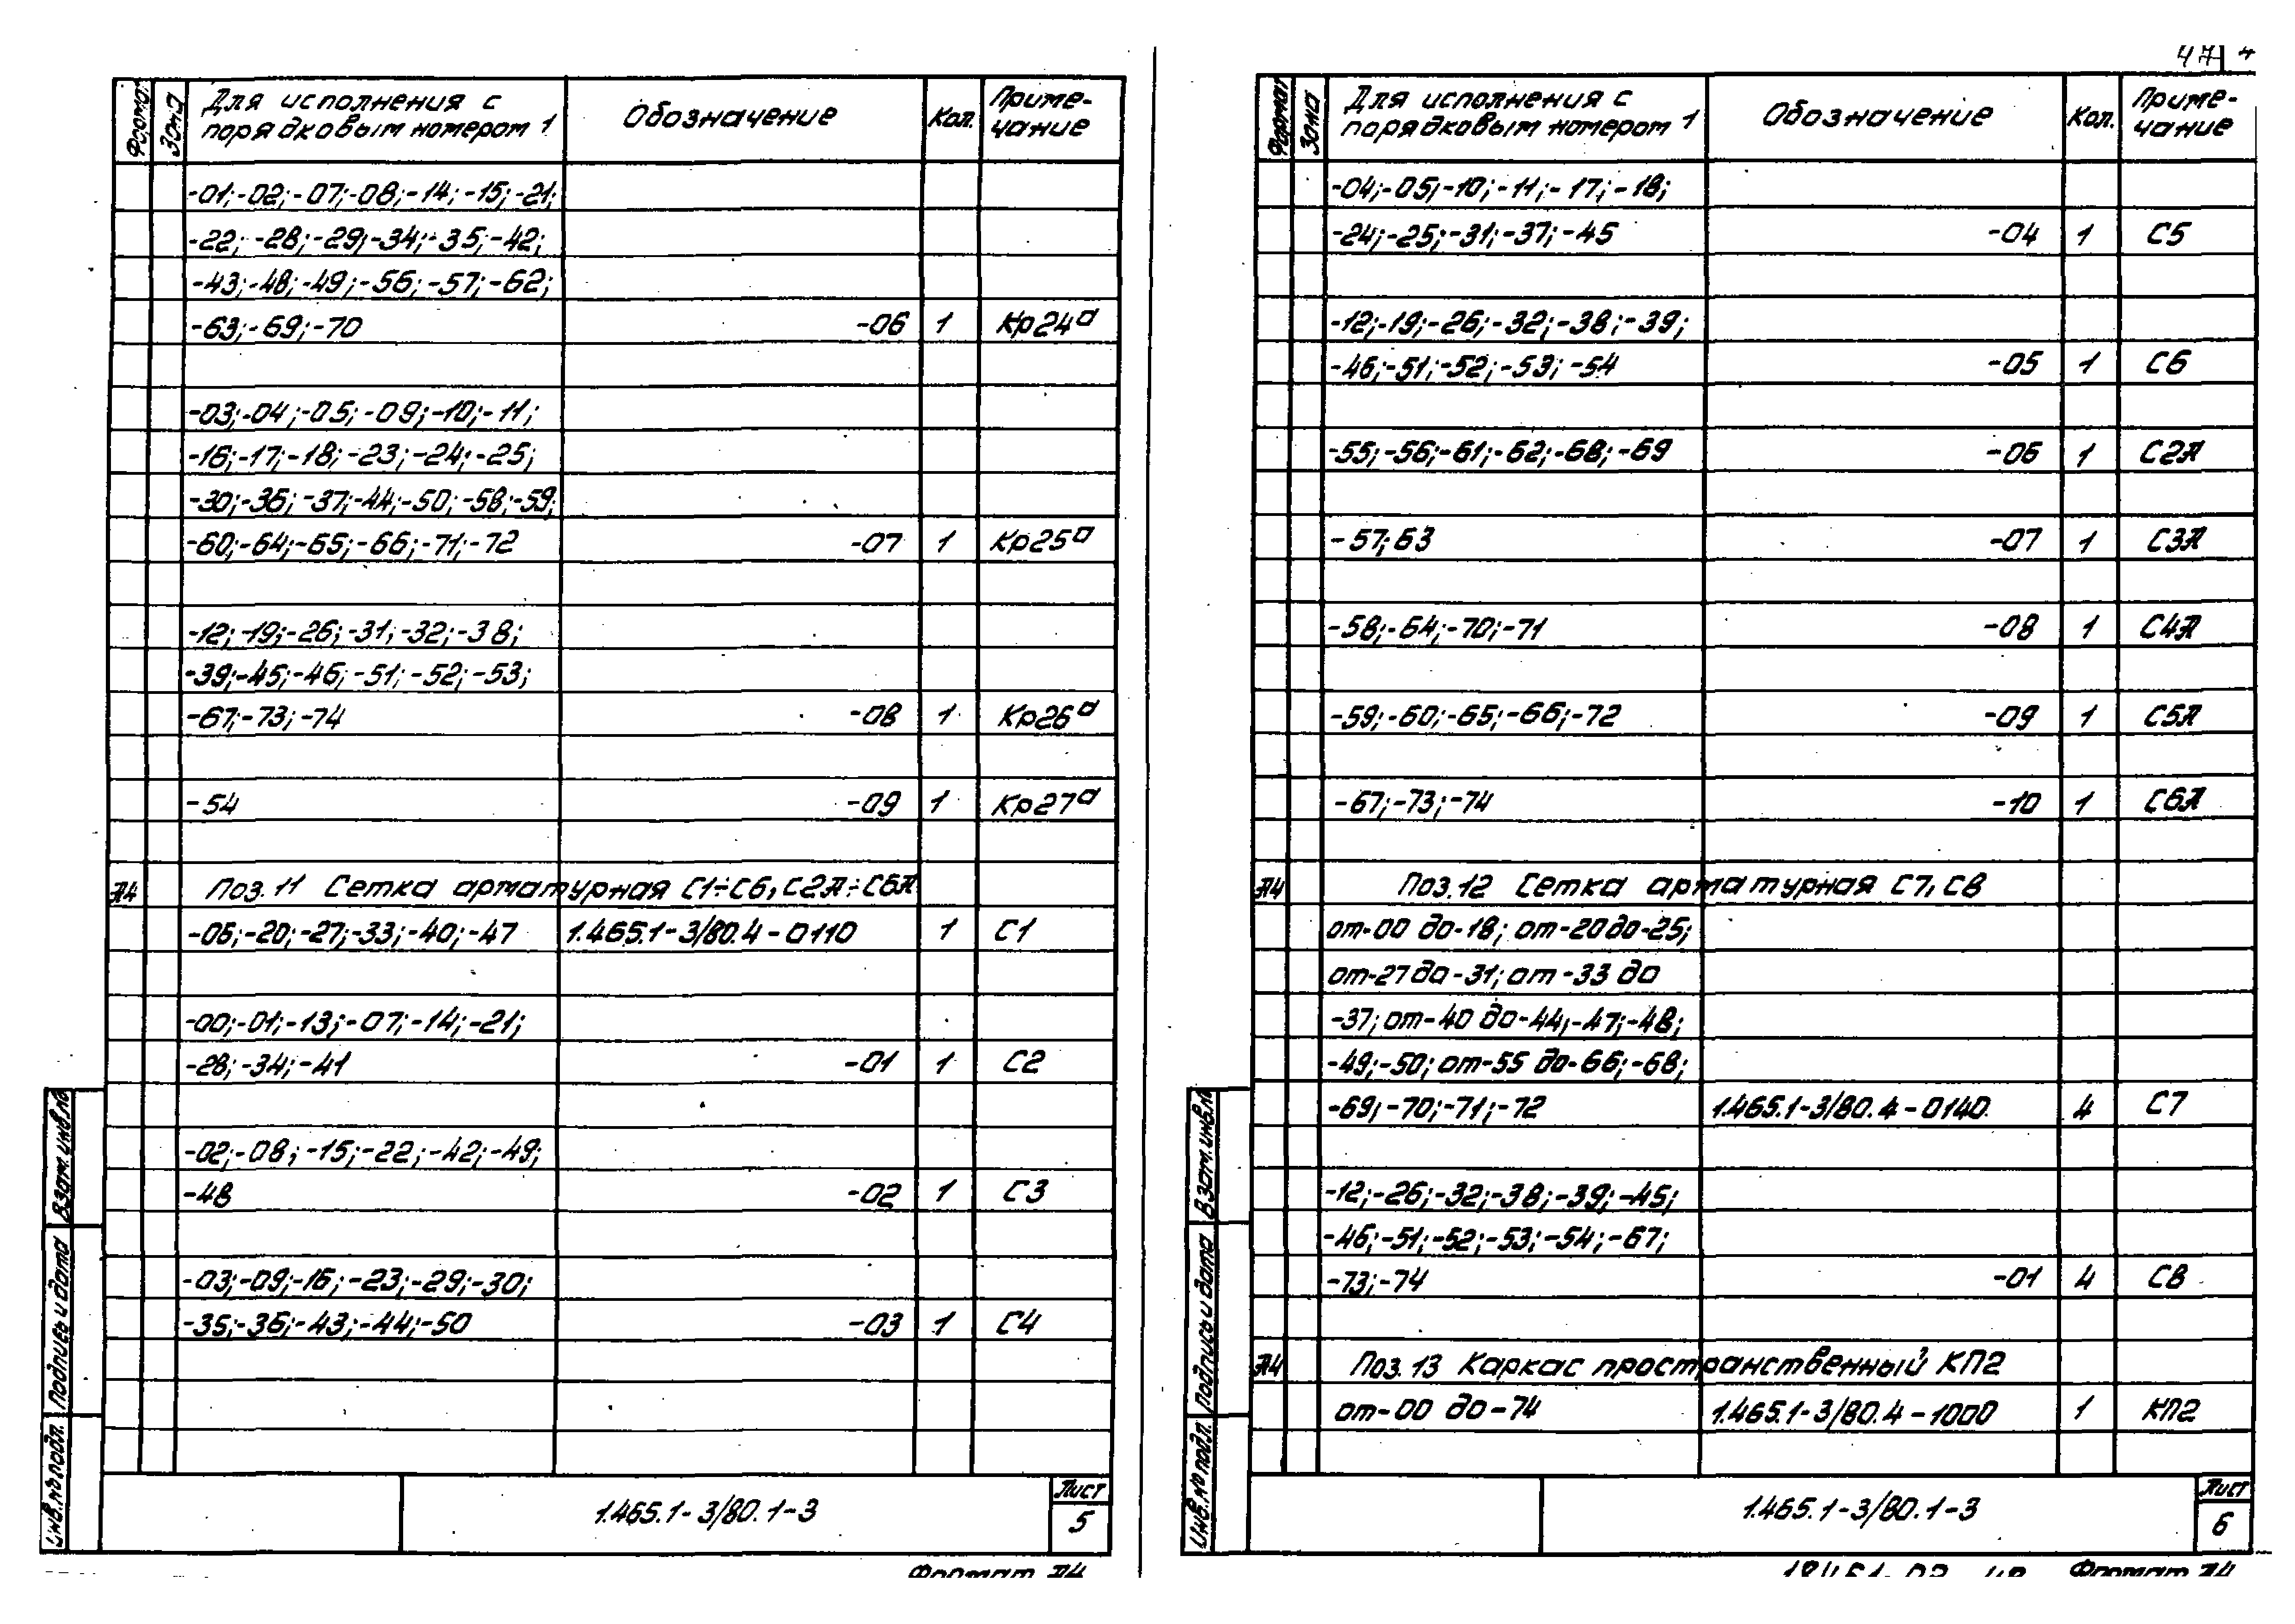 Формат Зона Для исполнения с порядковым номером 1 Обозначение Кол. Приме-чание
-01;-02;-07;-08;-14;-15;-21;
-22;-28;-29;-34;-35;-42;
-43;-48;-49;-56;-57;-62;
-63;-69;-70 -06 1 Кр24а
-03;-04;-05;-09;-10;-11;
-16;-17;-18;-23;-24;-25;
-30;-36;-37;-44;-50;-58;-59;
-60;-64;-65;-66;-71;-72 -07 1 Кр25а
-12;-19;-26;-31;-32;-38;
-39;-45;-46;-51;-52;-53;
-67;-73;-74 -08 1 Кр26а
-54 -09 1 Кр27а
А4 Поз. 11 Сетка арматурная С1÷С6, С2А÷С6А
-06;-20;-27;-33;-40;-47 1.465.1-3/80.4-0110 1 С1
-00;-01;-13;-07;-14;-21;
-28;-34;-41 -01 1 С2
-02;-08;-15;-22;-42;-49;
-48 -02 1 С3
-03;-09;-16;-23;-29;-30;
-35;-36;-43;-44;-50 -03 1 С4
Инв.№подл. Подпись и дата Взам.инв.№
1.465.1-3/80.1-3
Лист
5
Формат А4
47
Формат Зона Для исполнения с порядковым номером 1 Обозначение Кол. Приме-чание
-04;-05;-10;-11;-17;-18;
-24;-25;-31;-37;-45 -04 1 С5
-12;-19;-26;-32;-38;-39;
-46;-51;-52;-53;-54 -05 1 С6
-55;-56;-61;-62;-68;-69 -06 1 С2А
-57;63 -07 1 С3А
-58;-64;-70;-71 -08 1 С4А
-59;-60;-65;-66;-72 -09 1 С5А
-67;-73;-74 -10 1 С6А
А4 Поз. 12 Сетка арматурная С7, С8
от-00 до-18; от-20 до-25;
от-27 до-31; от-33 до
-37; от-40 до-44,-47;-48;
-49;-50; от-55 до-66;-68;
-69;-70;-71;-72 1.465.1-3/80.4-0140 4 С7
-12;-26;-32;-38;-39;-45;
-46;-51;-52;-53;-54;-67;
-73;-74 -01 4 С8
А4 Поз. 13 Каркас пространственный КП2
от-00 до-74 1.465.1-3/80.4-1000 1 КП2
Инв.№подл. Подпись и дата Взам.инв.№
1.465.1-3/80.1-3
Лист
6
Формат А4